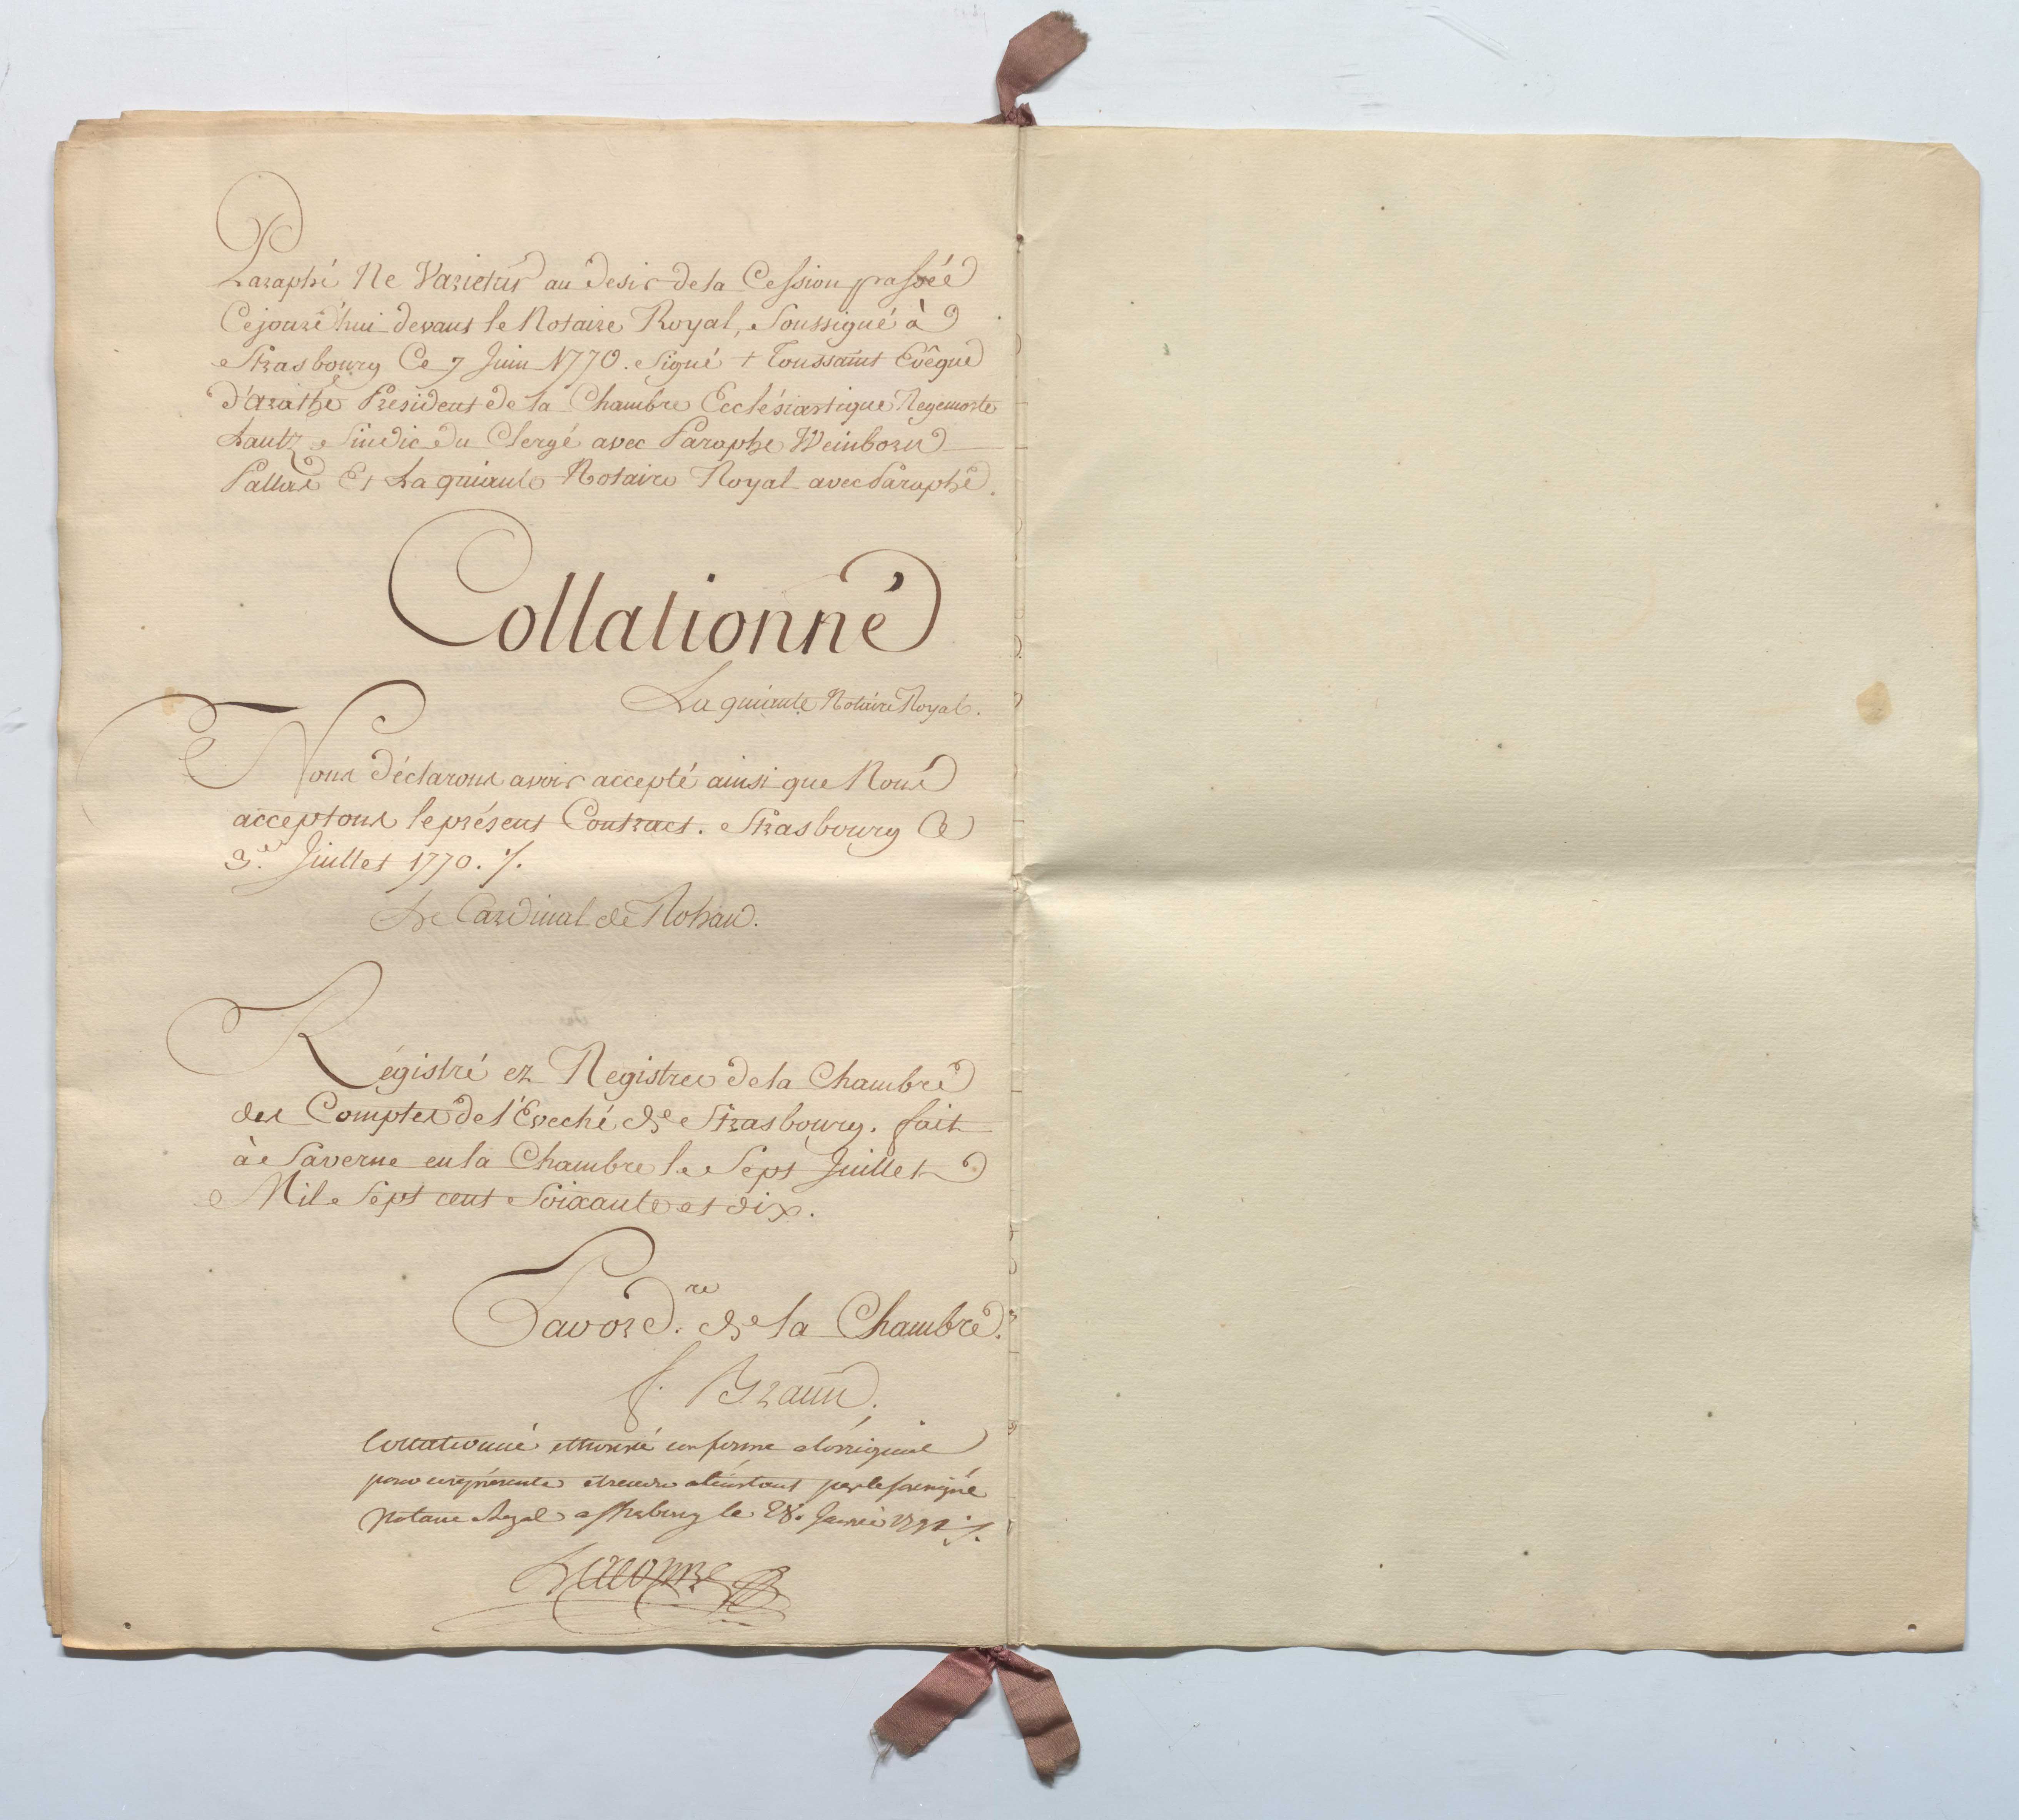 Paraphé Ne Varietur au desir de la Cession passée
Cejourd'hui devant le Notaire Royal, Soussigné à
Strasbourg Ce 7 Juin 1770. Signé + Toussaint Evêque
d'Arathe President de la Chambre Ecclésiastique Regemorte
Lantz Sindic du Clergé avec Paraphe Weinborn
Pallas Et Laquiante Notaire Royal avec Paraphe.
Collationné
Laquiante Notaire Royal.
Nous déclarons avoir accepté ainsi que Nous
acceptons le présent Contract. Strasbourg Ce
3.e Juillet 1770. /.
Le Cardinal de Rohan.
Régistré ez Registres de la Chambre
des Comptes de l'Eveché de Strasbourg. fait
à Saverne en la Chambre le Sept Juillet
Mil Sept cent Soixante et dix.
Par ord.re de la Chambre.
f. Braun.
Collationné et trouvé conforme a l'original
pour ce représenté et rendu a l'instant par le soussigné
Notaire Royal a Strasbourg le 28. 1791 /.
Lacombe